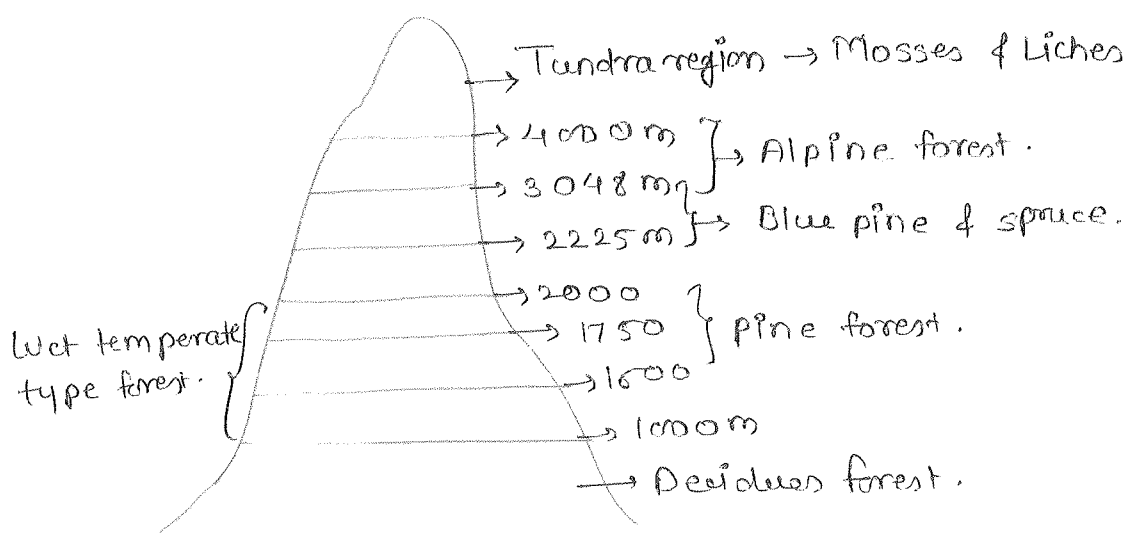 Tundra region → Mosses & Liches
→ 4000m
→ Alpine forest.
→ 3048m
→ Blue pine & spruce.
→ 2225m
→ 2000
→ 1750
pine forest.
Wet temperate
type forest.
→ 1500
→ 1000m
→ Decidues forest.